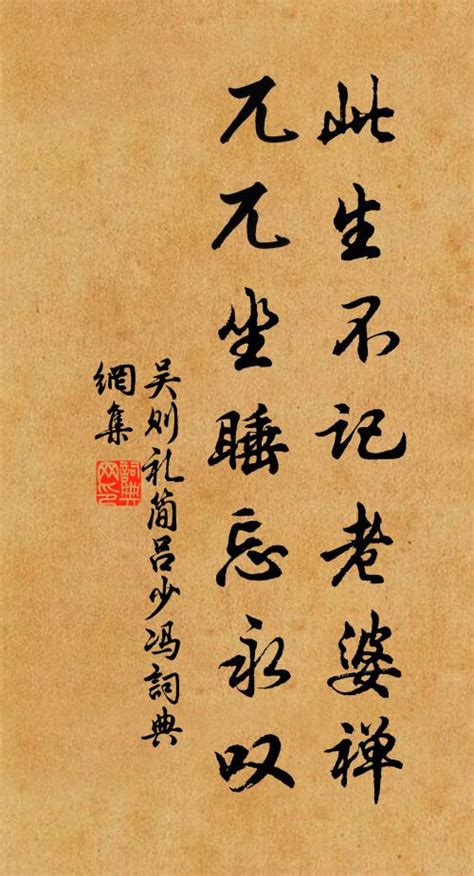 此生不记老婆禅
兀兀坐睡忘永叹
吴则礼简吕少冯詞典
網集
詞典
网印